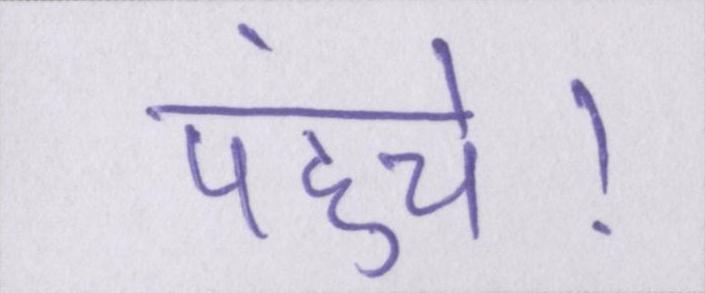 पंहुचे!